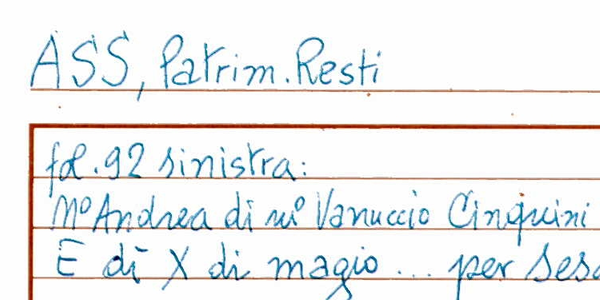 ASS, Patrim. Resti
fol. 92 sinistra:
Mº Andrea di mº Vanuccio Cinquini
E dī X di magio ... per